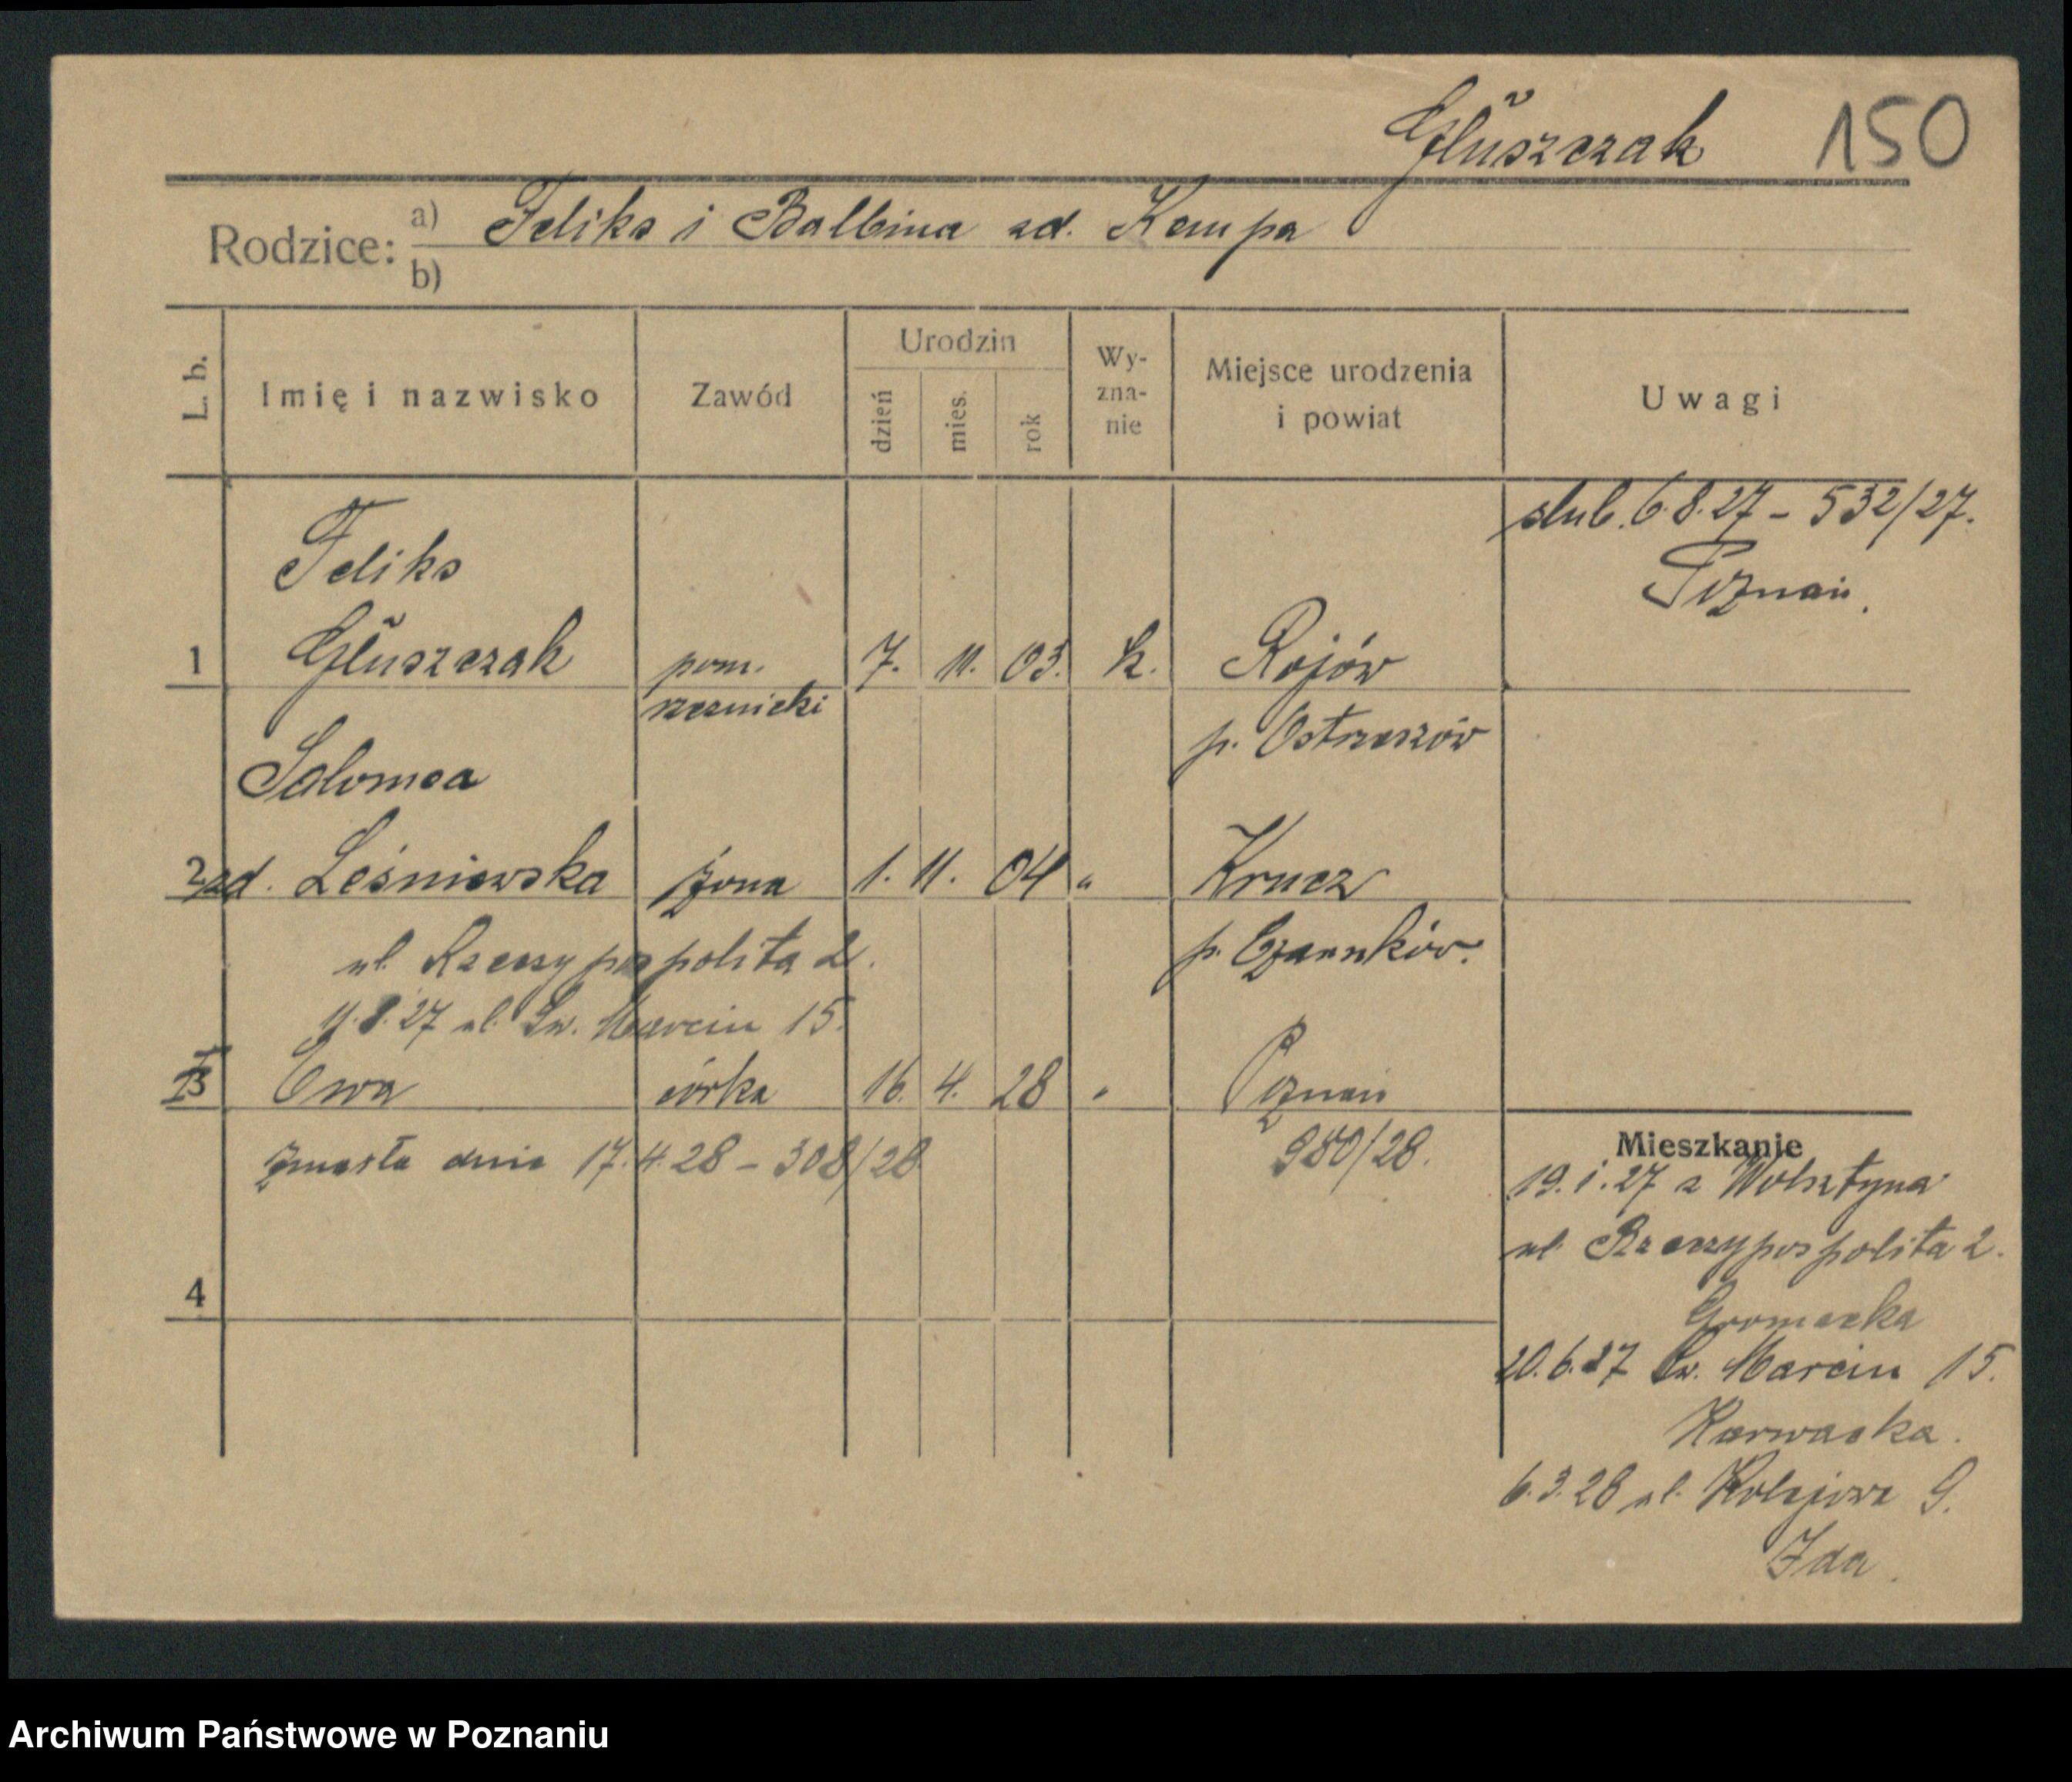 Głuszczak 150
Rodzice: a) Feliks i Balbina zd. Kempa
b)
L. b.
Imię i nazwisko
Zawód
Urodzin
dzień
mies.
rok
Wy-
zna-
nie
Miejsce urodzenia
i powiat
Uwagi
ślub. 6.8.27 – 532/27.
Poznań.
Feliks
1 Głuszczak pom. 7. 11. 03. k. Rojów
rzeźnicki
p. Ostrzeszów
Salomea
2 zd. Leśniewska żona 1. 11. 04 " Krucz
p. Czarnków.
ul. Rzeczypospolita 2.
8.27 ul. Św. Marcin 15.
3 Ewa córka 16. 4. 28 " Poznań
980/28.
zmarła dnia 17.4.28 – 308/28
Mieszkanie
19.1.27 z Wolsztyna
ul. Rzeczypospolita 2.
4
20.6.27 Św. Marcin 15.
Karwacka.
6.3.28 ul. Kolejowa 9.
Ida.
Archiwum Państwowe w Poznaniu